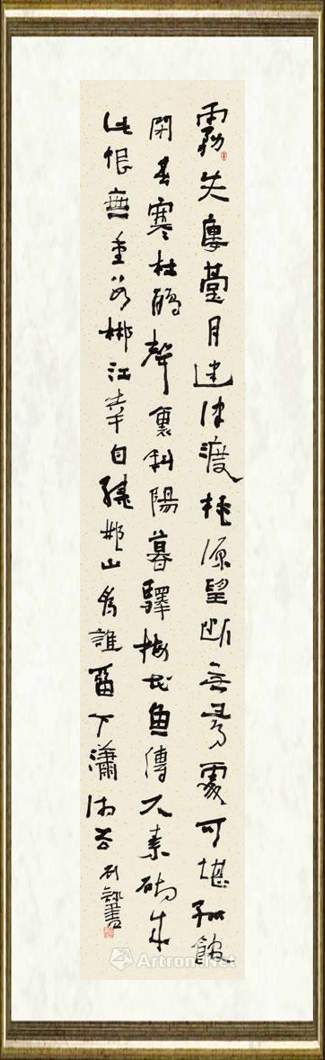 霧失廔臺月迷津渡桃源望断无尋處可堪孤館
閉春寒杜鵑聲裏斜陽暮驛梅花魚傳尺素砌成
此恨無重數郴江幸自繞郴山為誰留下瀟湘去 書
Artron.Net